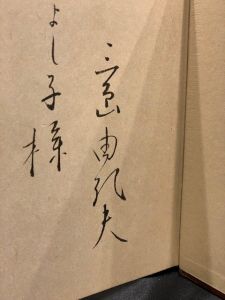 三島由紀夫
よし子様